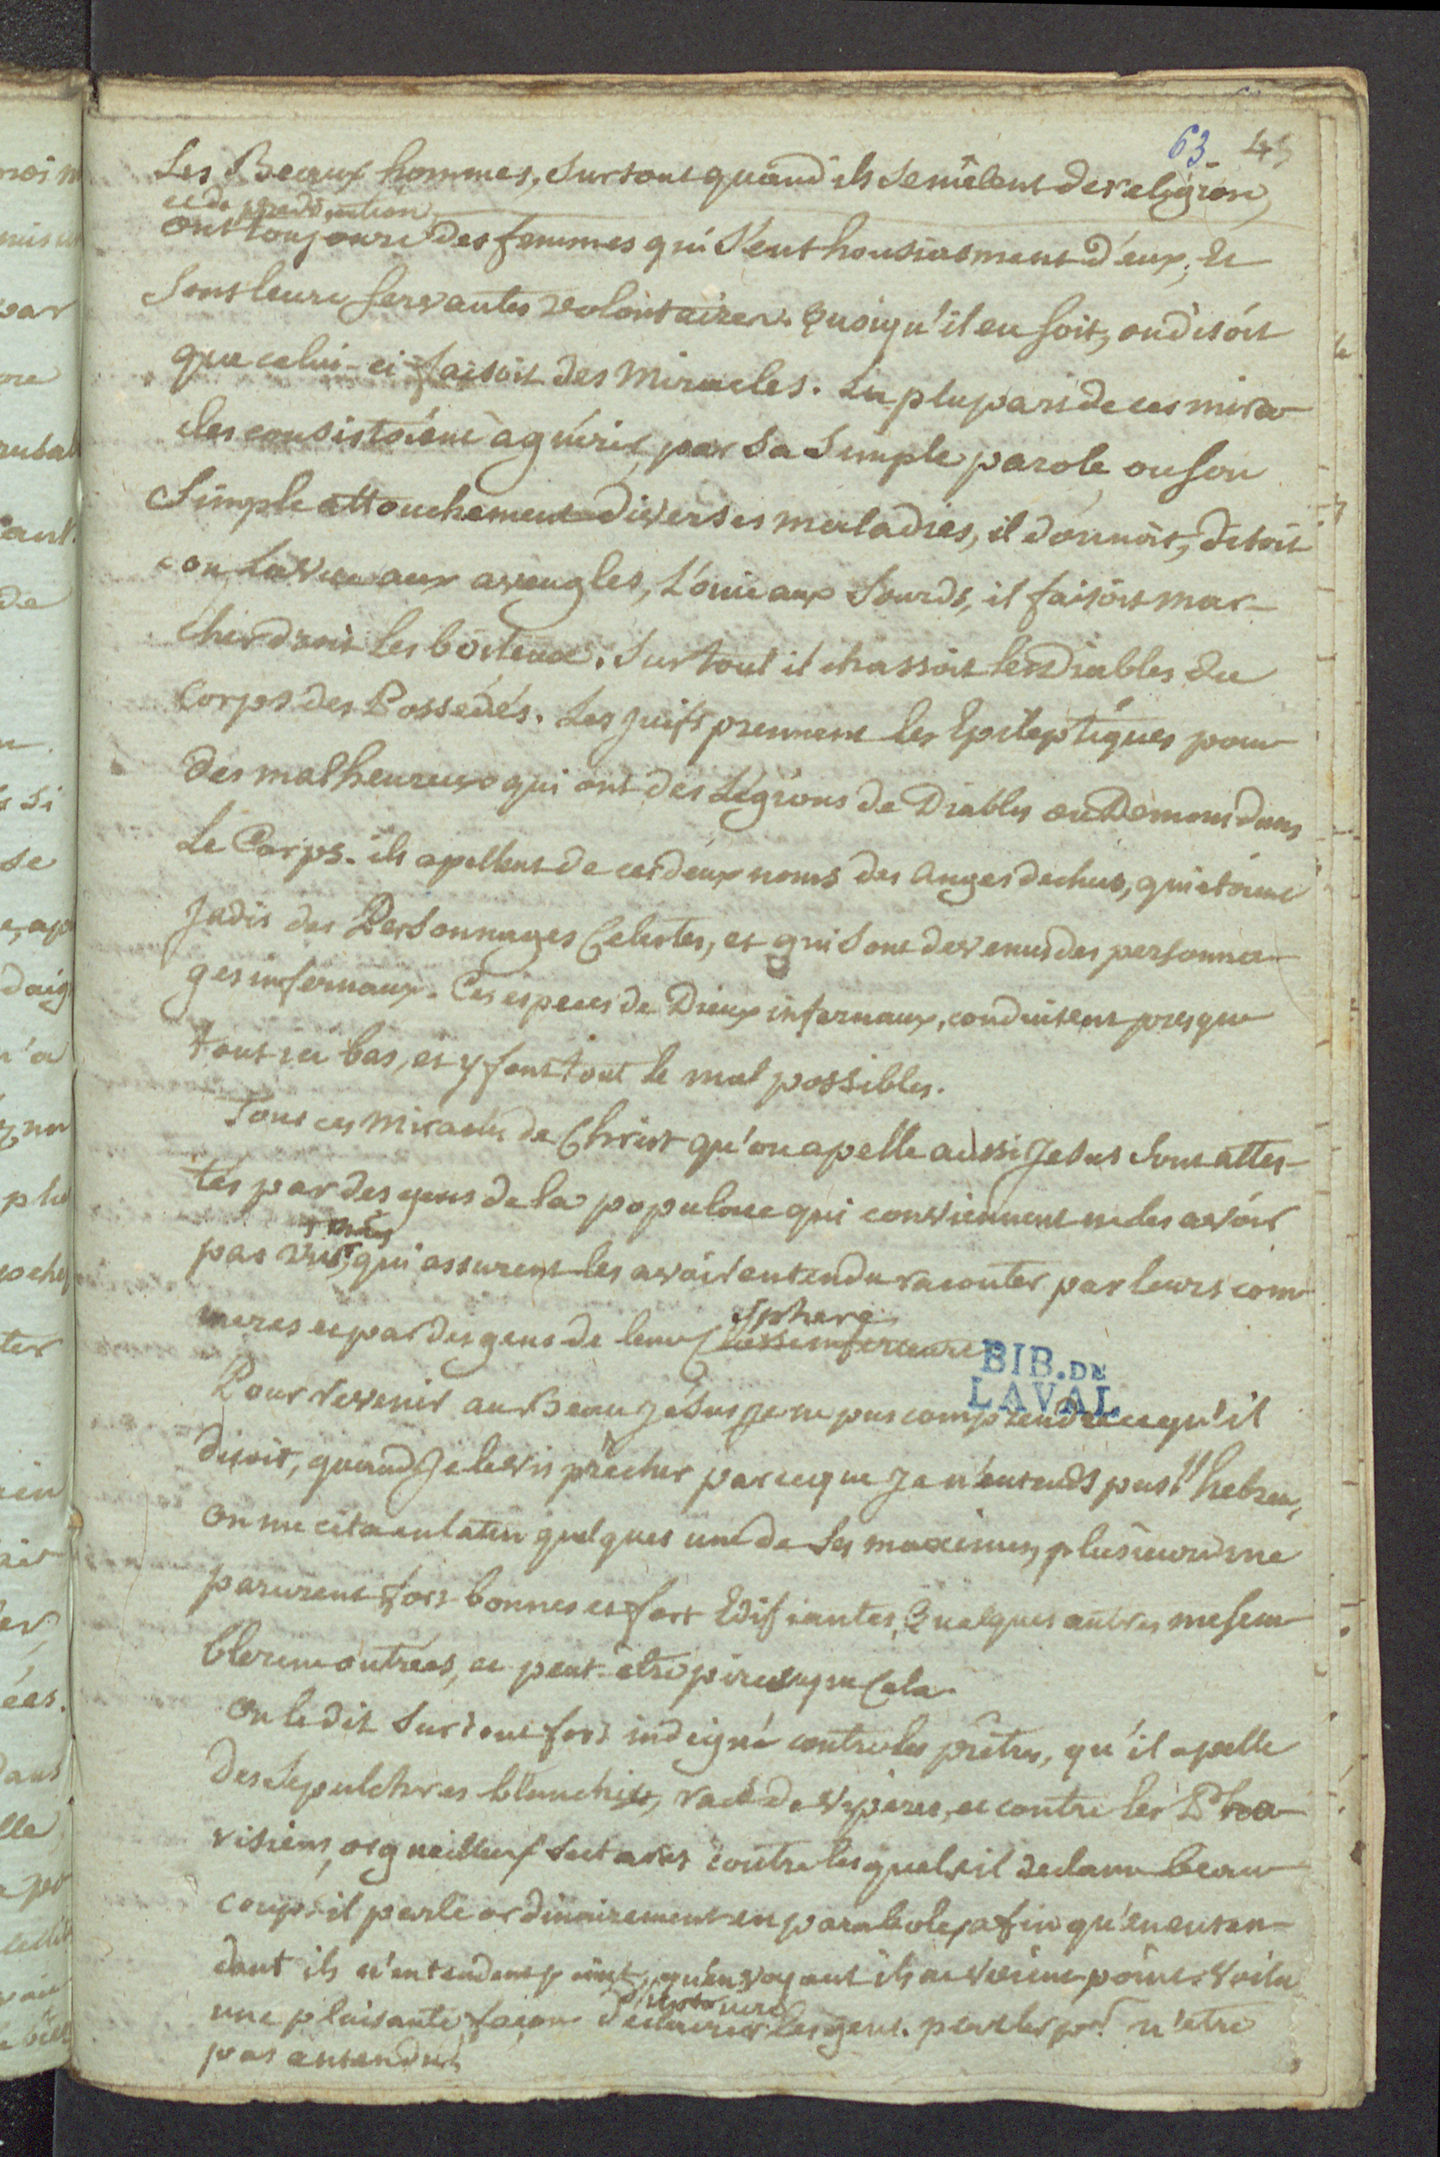 63. 45
Les Beaux hommes, surtout quand ils se mêlent de religion,
et de prédication
ont toujours des femmes qui s'enthousiasment d'eux, et
sont leurs servantes volontaires. Quoiqu'il en soit, on disoit
que celui-ci faisoit des Miracles. La plupart de ces mira-
cles consistoient à guérir, par sa simple parole ou son
simple attouchement diverses maladies, il donnoit, disoit
on, la vue aux aveugles, l'ouie aux sourds, il faisoit mar-
cher droit les boiteux. Surtout il chassoit les Diables du
Corps des Possédés. Les juifs prennent les Epileptiques pour
des malheureux qui ont des Légions de Diables ou Demons dans
Le Corps. ils apellent de ces deux noms des anges dechus, qui etoient
Jadis des Personnages Celestes, et qui sont devenus des personna-
ges infernaux. Ces especes de Dieux infernaux, conduisent presque
tout ici bas, et y font tout le mal possibles.
Tous ces Miracles de Christ qu'on apelle aussi Jesus sont attes-
tés par des gens de la populace qui conviennent ne les avoir
pas vus, qui assurent les avoir entendu raconter par leurs com-
meres et par des gens de leur Classe inferieure
sphere
BIB. DE
LAVAL
Pour revenir au Beau Jésus je ne pus comprendre ce qu'il
disoit, quand Je le vis prêcher parceque Je n'entends pas l'hebreu,
on me cita en latin quelques une de ses maximes, plusieurs me
parurent fort bonnes et fort Edifiantes, Quelques autres me sem-
blerent outrées, et peut-être pires que cela.
On le dit surtout fort indigné contre les prêtres, qu'il apelle
des sepulchres blanchis, race de vipères, et contre les Pha-
risiens, orgueilleux sectaires contre lesquels il declame beau-
coup. il parle ordinairement en paraboles, afin qu'en enten-
dant ils n'entendent point, qu'en voyant ils ne voient point. voila
une plaisante façon d'eclairer les gens. parler pr. n'etre
pas entendu!